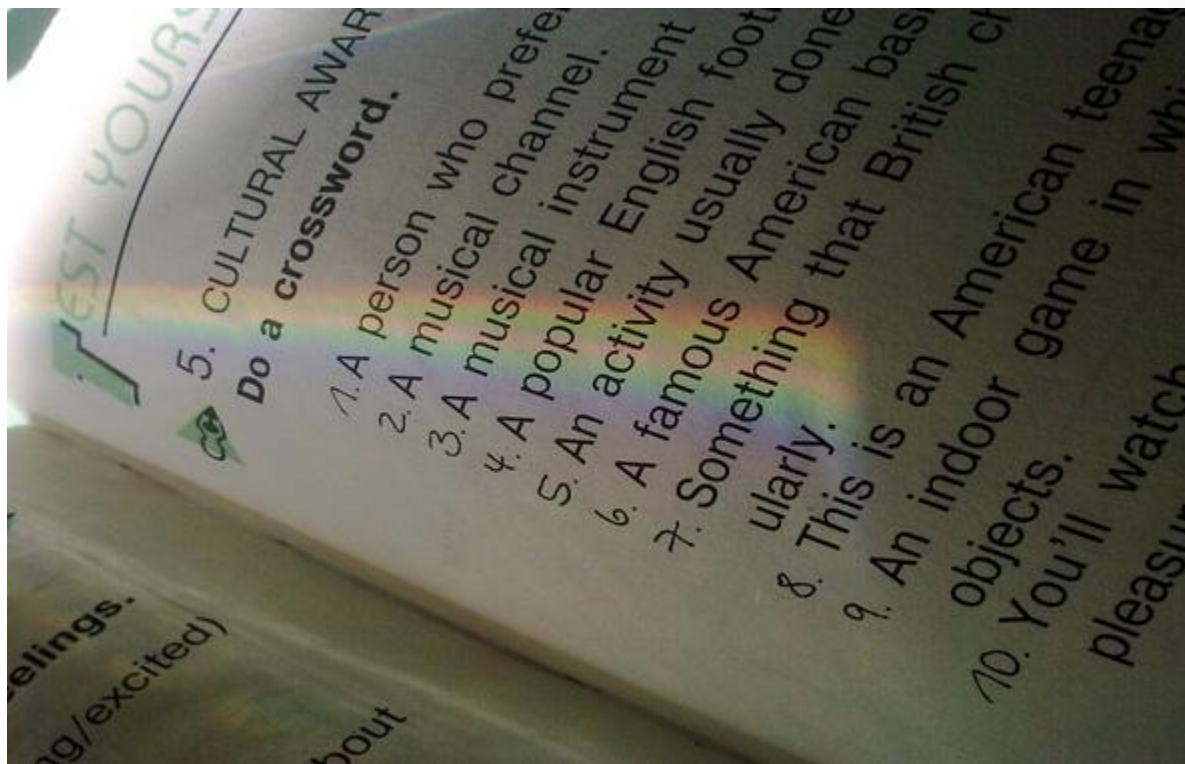 EST YOURS
5. CULTURAL AWAR
Do a crossword.
1. A person who prefe
2. A musical channel.
3. A musical instrument
4. A popular English foot
5. An activity usually done
6. A famous American bas
7. Something that British ch
ularly.
8. This is an American teenag
9. An indoor game in whi
objects.
10. You'll watch
pleasur
eelings.
ng/excited)
bout